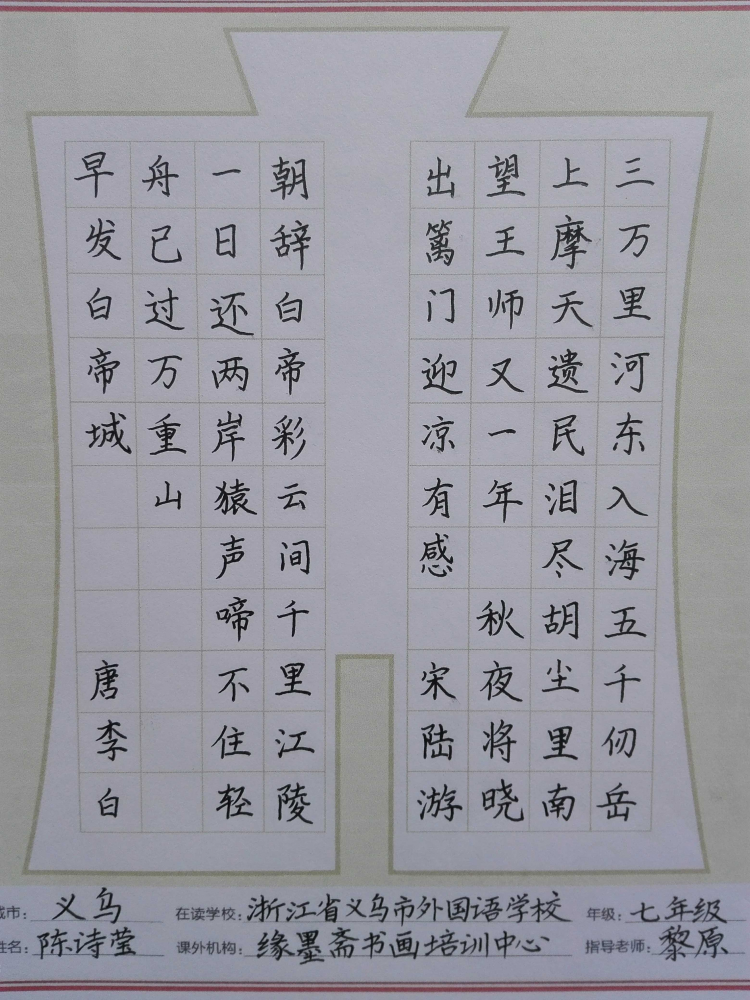 三万里河东入海五千仞岳
上摩天遗民泪尽胡尘里南
望王师又一年 秋夜将晓
出篱门迎凉有感 宋陆游
朝辞白帝彩云间千里江陵
一日还两岸猿声啼不住轻
舟已过万重山
早发白帝城 唐李白
城市: 义乌 在读学校: 浙江省义乌市外国语学校 年级: 七年级
姓名: 陈诗莹 课外机构: 缘墨斋书画培训中心 指导老师: 黎原